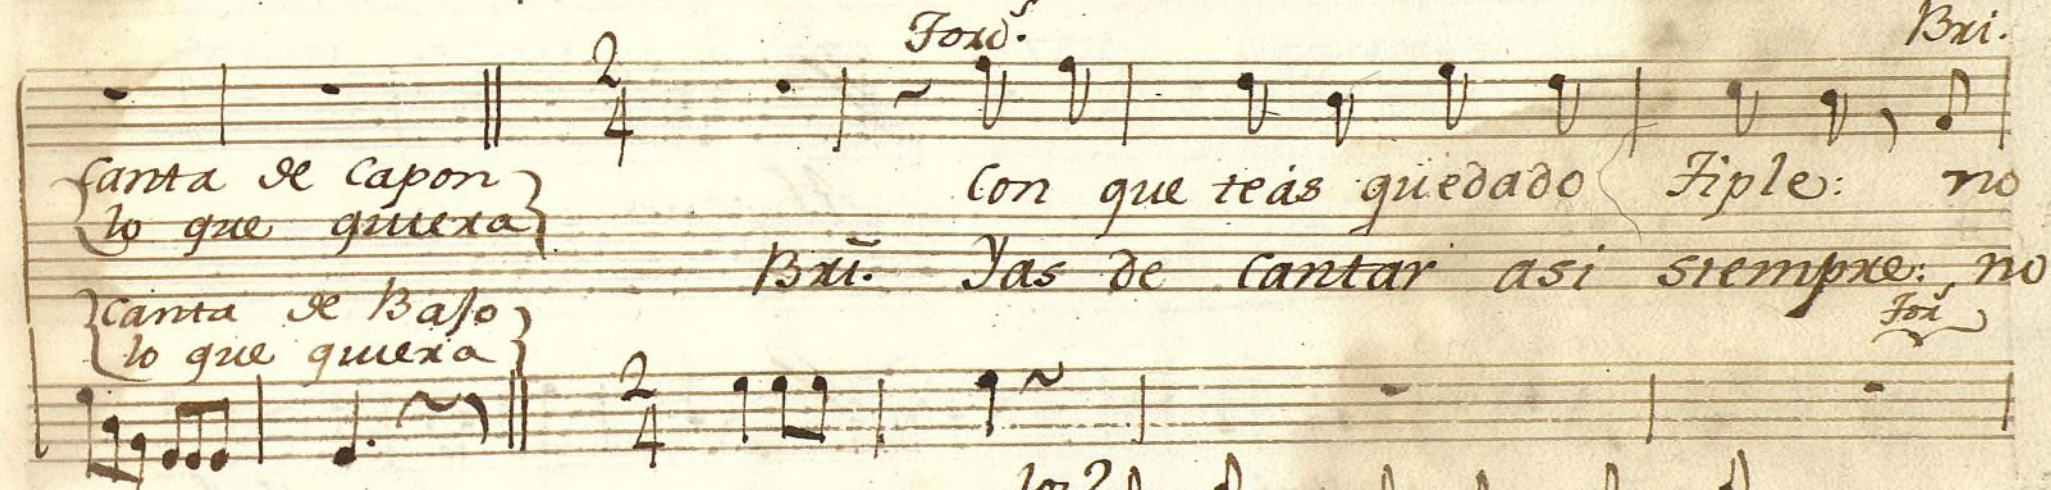 Ford.s Bri.
2
4
Canta de Capon
lo que quiera
Con que teás quedado Tiple: no
Bri. Yas de cantar asi siempre: no
For.s
Canta de Bajo
lo que quiera
2
4
los 2